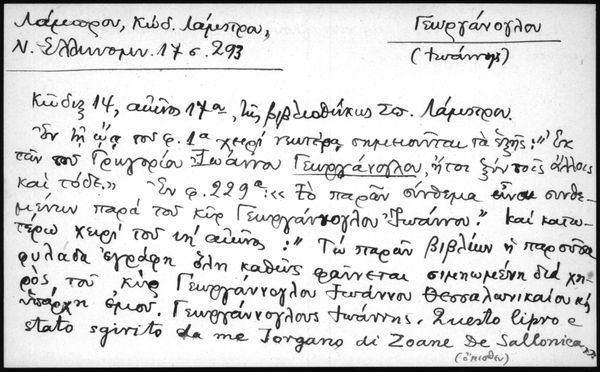 Λάμπρου, Κώδ. Λάμπρου,
Ν. Ελληνομν. 17 σ. 293
Γεωργάνογλου
(Ἰωάννης)
Κῶδιξ 14, αἰῶνος 17ου, τῆς βιβλιοθήκης Σπ. Λάμπρου.
Ἐν τῇ ᾤᾳ τοῦ φ. 1α χειρὶ νεωτέρᾳ σημειοῦνται τὰ ἑξῆς: "Ἐκ
τῶν τοῦ Γρηγορίου Ἰωάννου Γεωργάνογλου, ἤτοι ξὺν τοῖς ἄλλοις
καὶ τόδε." Ἐν φ. 229α: «Τὸ παρὸν σύνθεμα εἶναι συνθε-
μένων παρὰ τοῦ κὺρ Γεωργάνογλου Ἰωάννου." Καὶ κατω-
τέρω χειρὶ τοῦ ιη' αἰῶνος: "Τω παρὸν βιβλίων ἡ παροῦσα
φυλάδα ἐγράφη ὅλη καθὼς φαίνεται σιμηωμένη διὰ χη-
ρὸς τοῦ κὺρ Γεωργάνογλου Ἰωάννου Θεσσαλωνικαίου κὲ
ὑπάρχη ἐμοῦ. Γεωργάνογλους Ἰωάννης. Questo lipro e
stato sgirito da me Jorgano di Zoane De Sallonica"
(ὄπισθεν)